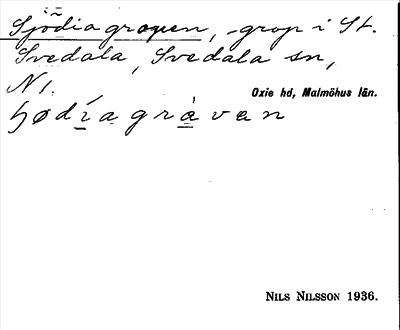 Sjödiagropen, grop i St.
Svedala, Svedala sn,
N 1.
Oxie hd, Malmöhus län.
ɧødíagràvan
NILS NILSSON 1936.